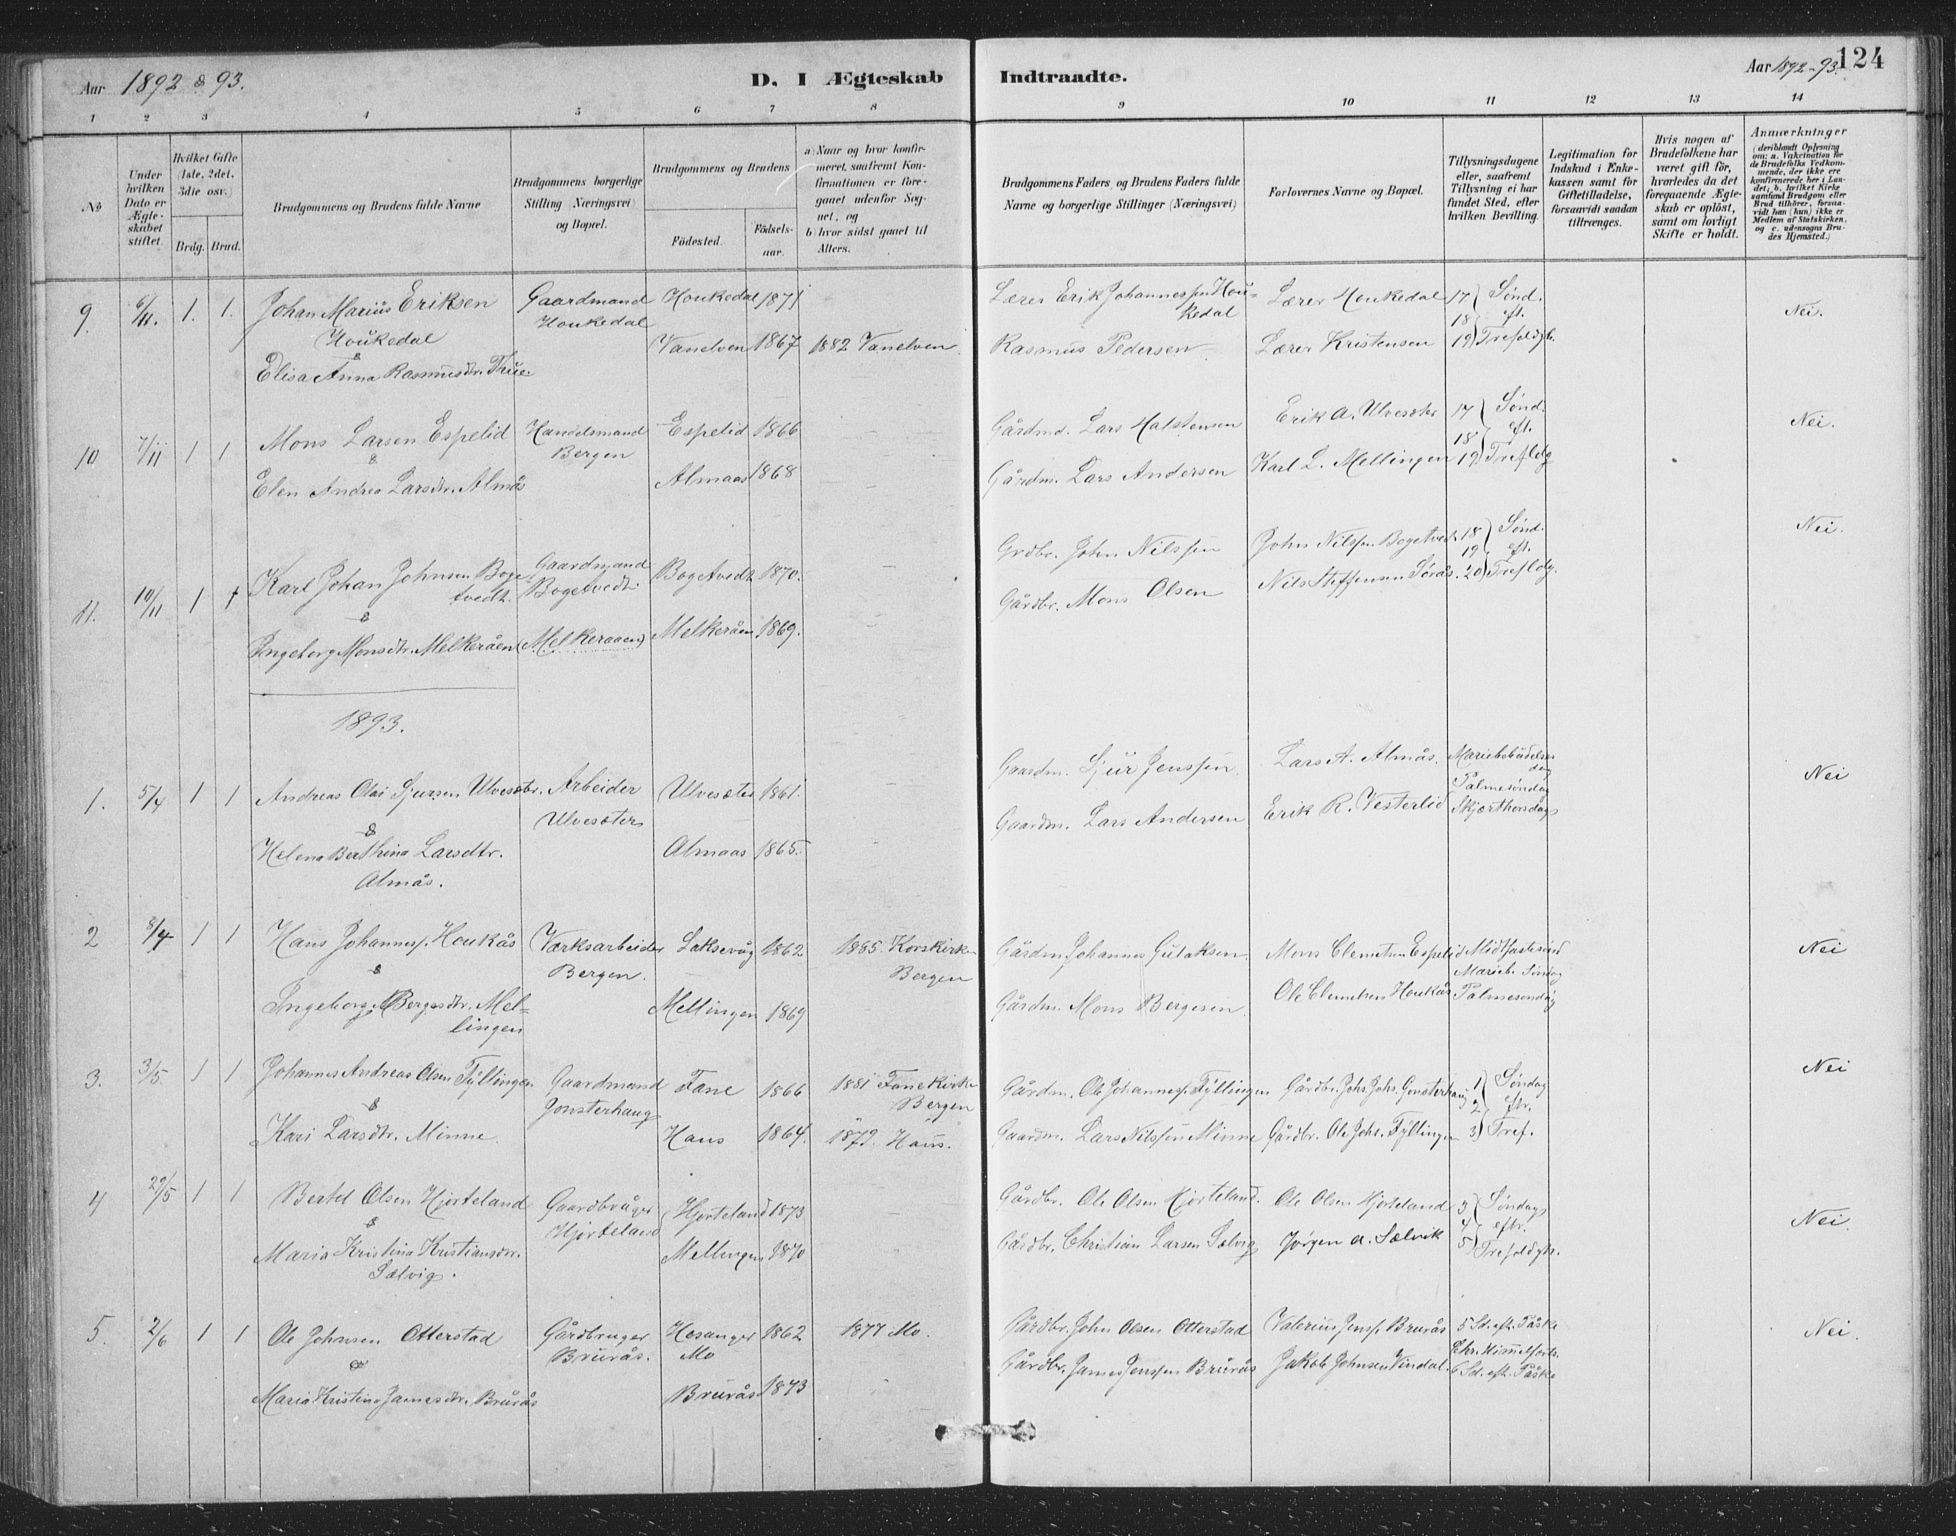 Aar 1892 & 93.
D. I Ægteskab
Indtraadte.
Aar 1892-93.
124
1 2 3 4 5 6 7 8
9 10 11 12 13 14
No
Under hvilken Dato er Ægteskabet stiftet.
Hvilket Gifte (1ste, 2det, 3die osv.)
Brdg. Brud.
Brudgommens og Brudens fulde Navne
Brudgommens borgerlige Stilling (Næringsvei) og Bopæl.
Brudgommens og Brudens
Födested.
Födselsaar.
a) Naar og hvor konfirmeret, saafremt Konfirmationen er foregaaet udenfor Sognet, og
b) hvor sidst gaaet til Alters.
Brudgommens Faders og Brudens Faders fulde Navne og borgerlige Stillinger (Næringsvei)
Forlovernes Navne og Bopæl.
Tillysningsdagene eller, saafremt Tillysning ei har fundet Sted, efter hvilken Bevilling.
Legitimation for Indskud i Enkekassen samt for Giftetilladelse, forsaavidt saadan tiltrænges.
Hvis nogen af Brudefolkene har været gift för, hvorledes da det foregaaende Ægteskab er oplöst, samt om lovligt Skifte er holdt.
Anmærkninger
(deriblandt Oplysning om: a. Vakcination for de Brudefolks Vedkommende, der ikke ere konfirmerede her i Landet; b. hvilket Kirkesamfund Brudgom eller Brud tilhörer, forsaavidt han (hun) ikke er Medlem af Statskirken, og c. udensogns Brudes Hjemsted.)
9. 6/11. 1. 1. Johan Marius Eriksen Gaardmand Houkedal 1871
Houkedal Houkedal
& Vanelven 1867 1882 Vanelven.
Elisa Anna Rasmusdtr. Thue.
Lærer Erik Johannessen Houkedal Lærer Houkedal 17 Sønd. Nei.
18 eft.
Rasmus Pedersen Lærer Kristensen 19 Trefoldgh.
10 7/11 1 1 Mons Larsen Espelid Handelsmand Espelid 1866
& Bergen
Elen Andrea Larsdtr. Almås Almaas 1868
Gårdmd. Lars Halstensen Erik A. Ulvesæter 17 Sønd. Nei.
18 eft.
Gårdm. Lars Andersen Karl L. Mellingen 19 Trefldg
11. 10/11 1 1 Karl Johan Johnsen Bogetvedt. Gaardmand Bogetvedt 1870.
& Bogetvedt
Ingeborg Monsdtr. Melkeråen (Melkeraaen) Melkeråen 1869.
Grdbr. John Nilssen John Nilss. Bogetvedt. 18 Sønd. Nei.
19 eft.
Gårdbr. Mons Olsen Nils Steffensen Sørås. 20 Trefldg.
1893.
1. 5/4 1 1 Andreas Olai Sjursen Ulvesæter. Arbeider Ulvesæter 1861.
& Ulvesæter
Helena Berthina Larsdtr. Almaas 1865.
Almås.
Gaardm. Sjur Jenssen. Lars A. Almås. Mariebebudelsesdag Nei
Palmesøndag
Gaardm. Lars Andersen Erik R. Vesterlid Skjærthorsdag
2 8/4 1 1 Hans Johanness. Houkås Værksarbeider Laksevåg 1862 1885 Korskirke
& Bergen. Bergen
Ingeborg Bergesdtr. Mellingen Mellingen 1869
Gårdm. Johannes Gulaksen. Mons Clemetsen Espelid Midtfastesønd Nei
Marieb. Søndag
Gårdm. Mons Bergesen. Ole Clemetsen Houkås Palmesøndag
3. 3/5. 1 1 Johannes Andreas Olsen Fyllingen Gaardmand Fane 1866 1881 Fane Kirke
& Jonsterhaug Bergen
Kari Larsdtr. Minne. Haus 1864. 1879. Haus.
Gårdm. Ole Johanness. Fyllingen Gårdbr. Johs. Johs. Gonsterhaug 1 Søndag Nei
2 eftr.
Gaardm. Lars Nilssen Minne Gårdbr. Ole Johs. Fyllingen 3 Tref.
4 29/5 1 1 Bertel Olsen Hjorteland Gaardbruger Hjorteland 1873
& Hjorteland
Maria Kristina Kristiansdtr. Mellingen 1870
Sælvig.
Gårdbr. Ole Olsen Hjorteland. Ole Olsen Hjorteland 3 Søndag Nei.
4 eftr.
Gårdbr. Christian Larsen Sælvig Jørgen A. Sælvik 5 Trefoldgh.
5. 2/6 1 1 Ole Johnsen Otterstad Gårdbruger Hosanger 1862 1877 Mo.
& Brurås. Mo
Maria Kristina Jamesdtr. Brurås Brurås 1873
Gårdbr. John Olsen Otterstad Valerius Jenss. Brurås 5 Sd. eft. Påske Nei.
Chr. Himmelfarts.
Gårdbr. James Jenssen Brurås Jakob Johnsen Vindal. 6 Sd. eft. Påske